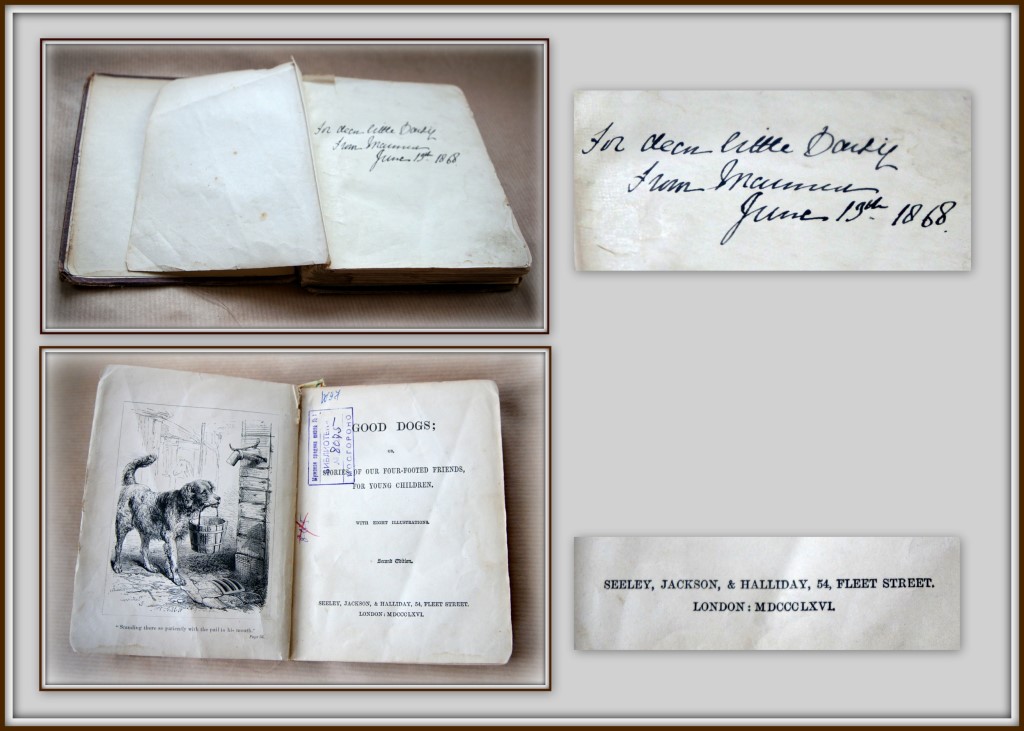 For dear little
From Mamma
June 13th 1868
For dear little
From Mamma
June 13th 1868.
GOOD DOGS;
OR,
STORIES OF OUR FOUR-FOOTED FRIENDS,
FOR YOUNG CHILDREN.
WITH EIGHT ILLUSTRATIONS.
Second Edition.
SEELEY, JACKSON, & HALLIDAY, 54, FLEET STREET.
LONDON: MDCCCLXVI.
"Standing there so patiently with the pail in his mouth."
Page
БИБЛИОТЕКА
8085
SEELEY, JACKSON, & HALLIDAY, 54, FLEET STREET.
LONDON: MDCCCLXVI.